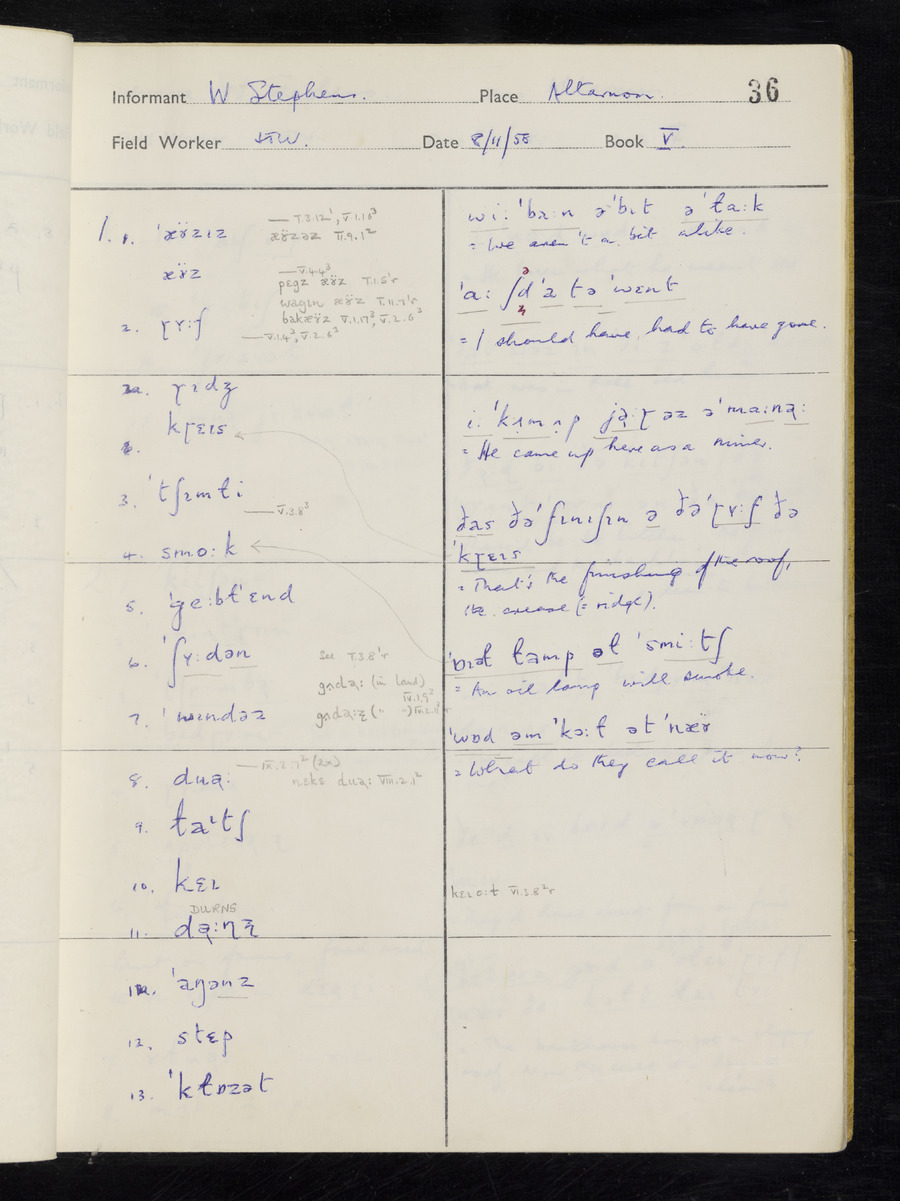 Informant W Stephens. Place Altarnon. 36
Field Worker Date 8/11/55 Book V.
1. 1. ˈæʏ̈zɪz
— T.3.12ˈ, V.1.10³
æʏ̈zəz II.9.1²
æʏ̈z
— V.4.4³
pɛgz æʏ̈z T.1.5ˈr
wagɪn æʏ̈z T.11.7ˈr
bakæʏ̈z V.1.17³, V.2.6³
2. ɽʏːf
— V.1.4³, V.2.6³
2a. ɽɪdʒ
kɽɛɪs
3. ˈtʃɪmti
— V.3.8³
4. smoːk
5. ˈgeːbɫˈɛnd
6. ˈʃʏːdən
See T.3.8ˈr
(in land)
IV.1.9²
7. ˈwɪndəz
8. duə̣ː
— IX.2.7² (2x)
nɛks duə̣ː VIII.2.1²
9. ɫatʃ
10. kɛɪ
DURNS
11.
11a. ˈaŋənz
12. stɛp
13. ˈkɫɒzət
wiː ˈbɪːn əˈbɪt əˈɫaːk
= We aren't a bit alike.
ˈaː ʃd ˈa tə ˈwɛnt
= I should have had to have gone.
= He came up here as a miner.
ðas ðəˈfɪnɪʃɪn ə ðəˈɽʏːf ðə
ˈkɽɛɪs
= That's the finishing of the roof,
the crease (= ridge).
ˈɒɪəɫ ɫamp əɫ ˈsmiːtʃ
= An oil lamp will smoke.
ˈwɒd əm ˈkɔːɫ ət ˈnæʏ̈
= What do they call it now?
kɛɪoːɫ VI.3.8²r